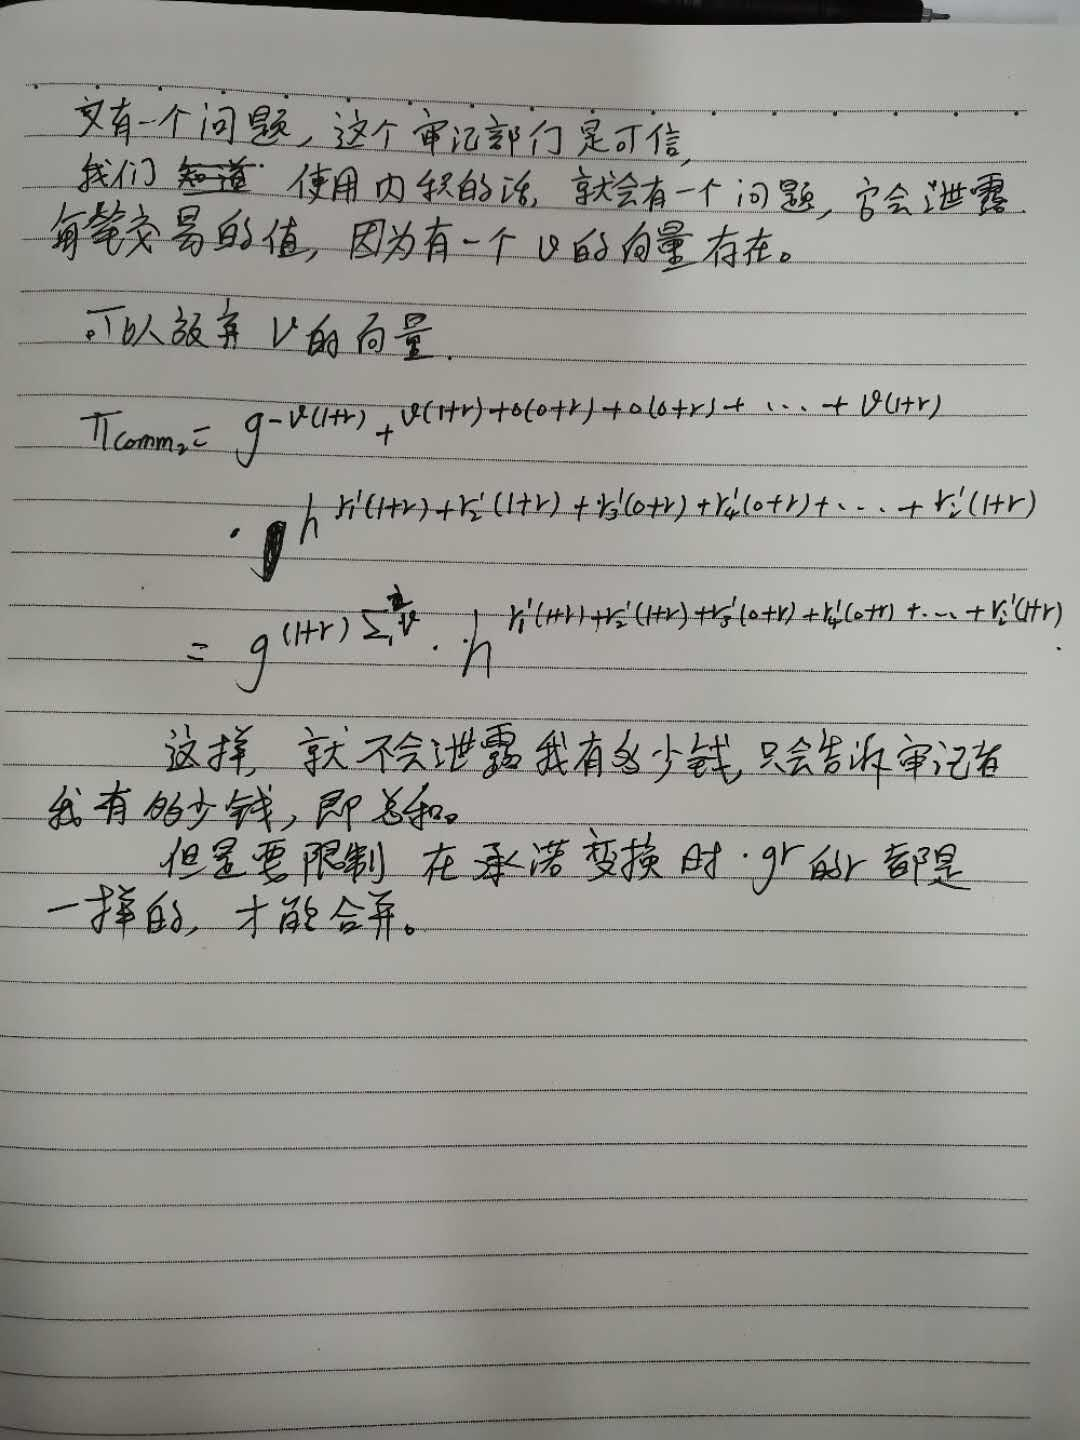 文有一个问题，这个审记部门是可信，
我们 知道 使用内积的话，就会有一个问题，它会泄露
每笔交易的值，因为有一个 v 的向量存在。
可以放弃 V 的向量.
πcomm₂ = g^{-v(1+r) + v(1+r)+0(0+r)+0(0+r)+ ... + v(1+r)}
· h^{r₁'(1+r)+r₂'(1+r)+r₃'(0+r)+r₄'(0+r)+...+rᵢ'(1+r)}
= g^{(1+r) Σ₁ v} · h^{r₁'(1+r)+r₂'(1+r)+r₃'(0+r)+r₄'(0+r)+...+rᵢ'(1+r)}.
这样，就不会泄露我有多少钱，只会告诉审记者
我有多少钱，即总和。
但是要限制 在承诺变换时·gr 的r 都是
一样的，才能合并。